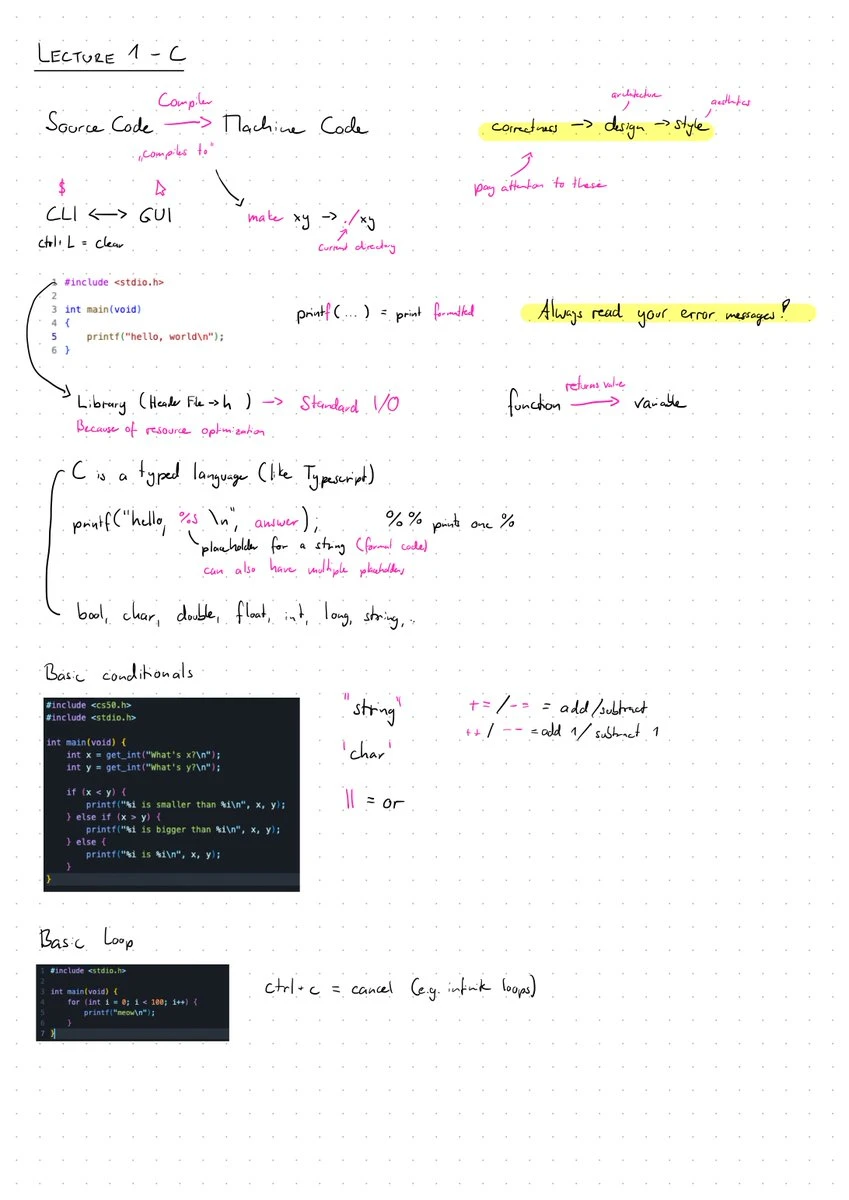 LECTURE 1 - C
Compiler
Source Code → Machine Code
„compiles to"
architecture
aesthetics
correctness → design → style
pay attention to these
$
CLI ↔ GUI
ctrl+L = clear
make xy → ./xy
current directory
1 #include <stdio.h>
2
3 int main(void)
4 {
5 printf("hello, world\n");
6 }
printf(...) = print formatted
Always read your error messages!
Library (Header File → h ) → Standard I/O
Because of resource optimization
returns value
function → variable
C is a typed language (like Typescript)
printf("hello, %s \n", answer);
%% prints one %
placeholder for a string (format code)
can also have multiple placeholders
bool, char, double, float, int, long, string,..
Basic conditionals
#include <cs50.h>
#include <stdio.h>
int main(void) {
int x = get_int("What's x?\n");
int y = get_int("What's y?\n");
if (x < y) {
printf("%i is smaller than %i\n", x, y);
} else if (x > y) {
printf("%i is bigger than %i\n", x, y);
} else {
printf("%i is %i\n", x, y);
}
}
"string"
'char'
|| = or
+= / -= = add/subtract
++ / -- = add 1/ subtract 1
Basic Loop
1 #include <stdio.h>
2
3 int main(void) {
4 for (int i = 0; i < 100; i++) {
5 printf("meow\n");
6 }
7 }
ctrl+c = cancel (e.g. infinite loops)